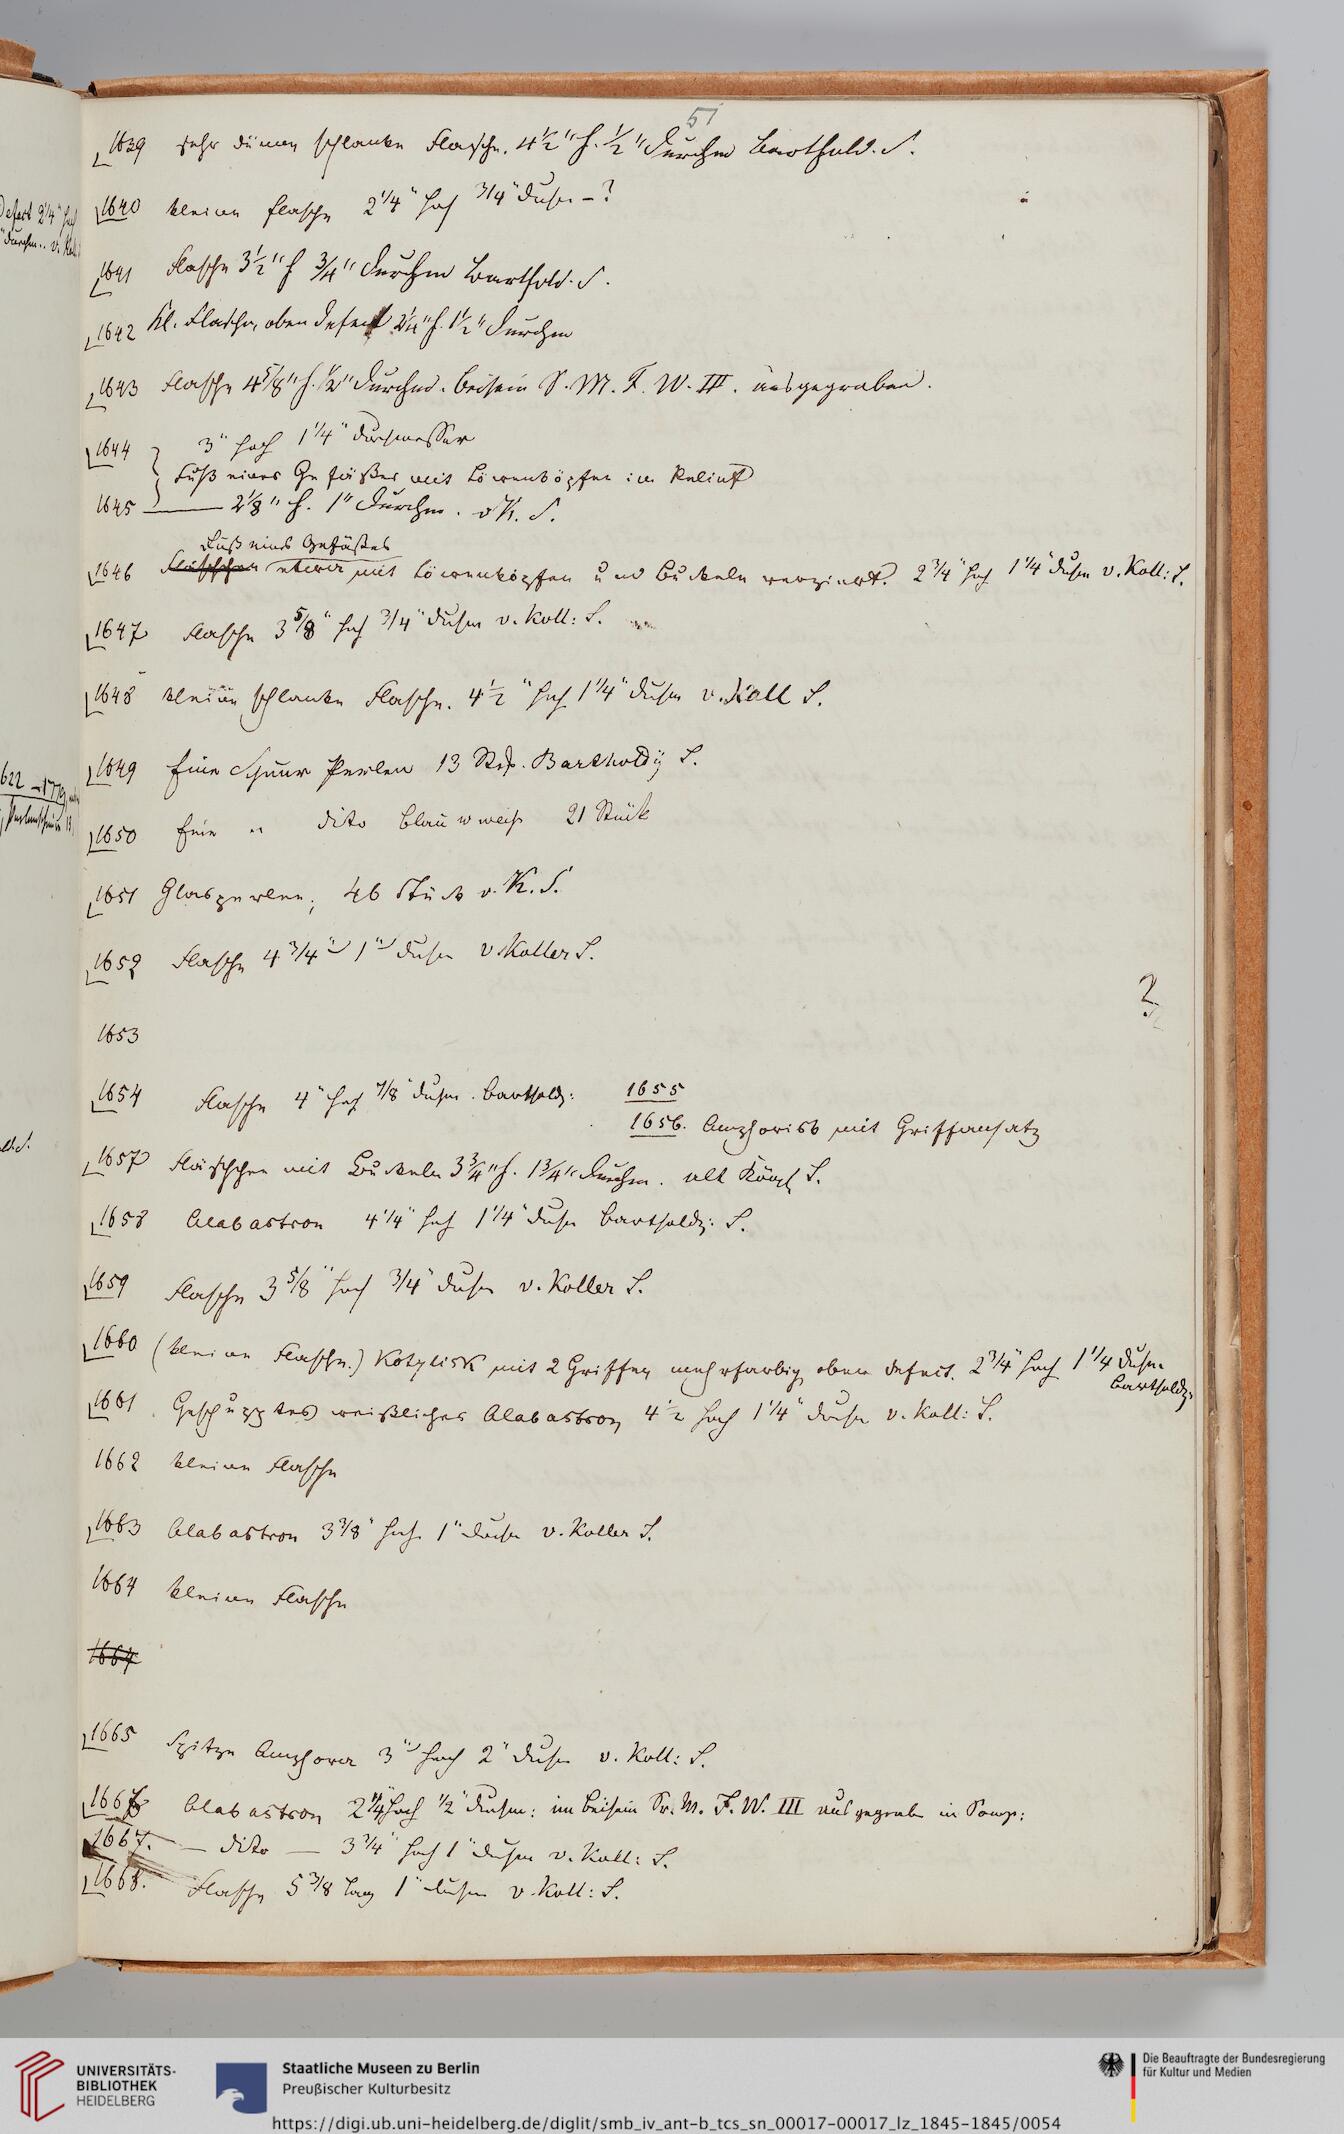 51
1639 sehr dünne schlanke Flasche. 4½" h. ½" Durchm Barthold. S.
1640 kleine Flasche 2 1/4" hoch 3/4" Durchm – ?
1641 Flasche 3½" h ¾" Durchm Barthold. S.
1642 Kl. Flasche, oben defect 2¼" h. 1½" Durchm
1643 Flasche 4 5/8" h. ½" Durchm. Beisein S. M. F. W. III. ausgegraben.
1644 3" hoch 1 1/4" Durchmesser
Fuß eines Gefäßes mit Löwenköpfen im Relief
1645 —— 2⅛" h. 1" Durchm. v K. S.
Fuß eines Gefäßes
1646 Fläschchen etwa mit Löwenköpfen und Buckeln verziert. 2 3/4" hoch 1 1/4" Durchm v. Koll: S.
1647 Flasche 3 5/8" hoch 3/4" Durchm v. Koll: S.
1648 kleine schlanke Flasche. 4½" hoch 1 1/4" Durchm v. Koll S.
1649 Eine Schnur Perlen 13 Stck. Bartholdy S.
1650 Eine " dito blau u weiß 21 Stück
1651 Glasperlen; 46 Stück v. K. S.
1652 Flasche 4 3/4" 1" Durchm v Koller S.
1653
?
1654 Flasche 4" hoch 7/8" Durchm. Bartholdy: 1655
1656. Amphorisk mit Griffansatz
1657 Fläschchen mit Buckeln 3¾" h. 1¾" Durchm. alt Königl. S.
1658 Alabastron 4 1/4" hoch 1 1/4" Durchm Bartholdy: S.
1659 Flasche 3 5/8" hoch 3/4" Durchm v. Koller S.
1660 (kleine Flasche.) Kotylisk mit 2 Griffen mehrfarbig oben defect. 2 3/4" hoch 1 1/4 Durchm
Bartholdy:
1661 Geschupptes weißliches Alabastron 4½ hoch 1 1/4" Durchm v. Koll: S.
1662 kleine Flasche
1663 Alabastron 3 3/8" hoch 1" Durchm v. Koller S.
1664 kleine Flasche
1664
1665 Spitze Amphora 3" hoch 2" Durchm v. Koll: S.
1666 Alabastron 2 1/4" hoch 1/2" Durchm: im Beisein Sr. M. F. W. III ausgegrab in Pomp:
1667. — dito — 3 3/4" hoch 1" Durchm v. Koll: S.
1668. Flasche 5 3/8 lang 1" Durchm v. Koll: S.
UNIVERSITÄTS-
BIBLIOTHEK
HEIDELBERG
Staatliche Museen zu Berlin
Preußischer Kulturbesitz
Die Beauftragte der Bundesregierung
für Kultur und Medien
https://digi.ub.uni-heidelberg.de/diglit/smb_iv_ant-b_tcs_sn_00017-00017_lz_1845-1845/0054